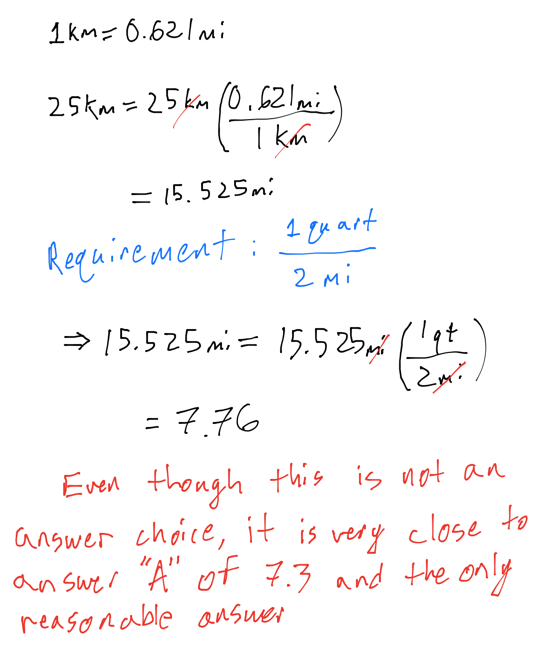 1km = 0.621mi
25km = 25km (0.621mi / 1 km)
= 15.525mi
Requirement: 1 quart / 2 mi
⇒ 15.525mi = 15.525mi (1qt / 2mi)
= 7.76
Even though this is not an
answer choice, it is very close to
answer "A" of 7.3 and the only
reasonable answer